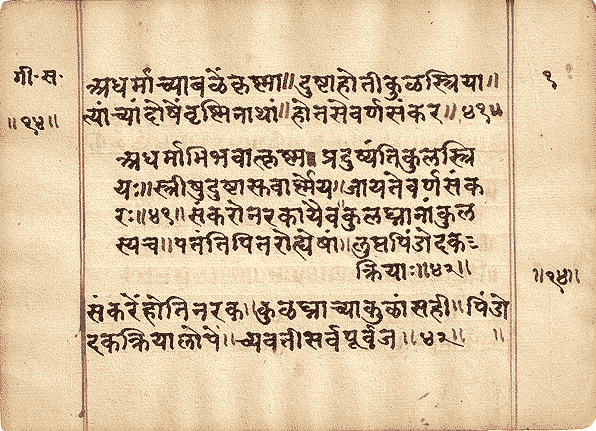 गी·स·
॥१४॥
अधर्माच्याबळेंकृष्णा॥दुष्टाहोतीकुळस्त्रिया॥
त्यांच्यांदोषेंवृष्णिनाथां॥होतसेवर्णसंकर॥४१॥
अधर्माभिभवात्कृष्ण॥ प्रदुष्यंतिकुलस्त्रि
यः॥स्त्रीषुदुष्टासुवार्ष्णेय॥जायतेवर्णसंक
रः॥४१॥संकरोनरकायैवकुलघ्नानांकुल
स्यच॥पतंतिपितरोह्येषां॥लुप्तपिंडोदकः
क्रियाः॥४२॥
संकरेंहोतिनरक॥कुळघ्नाच्याकुळांसही॥पिंडो
दकक्रियालोपें॥च्यवतीसर्वपूर्वज॥४२॥ ॥
१
॥१४॥